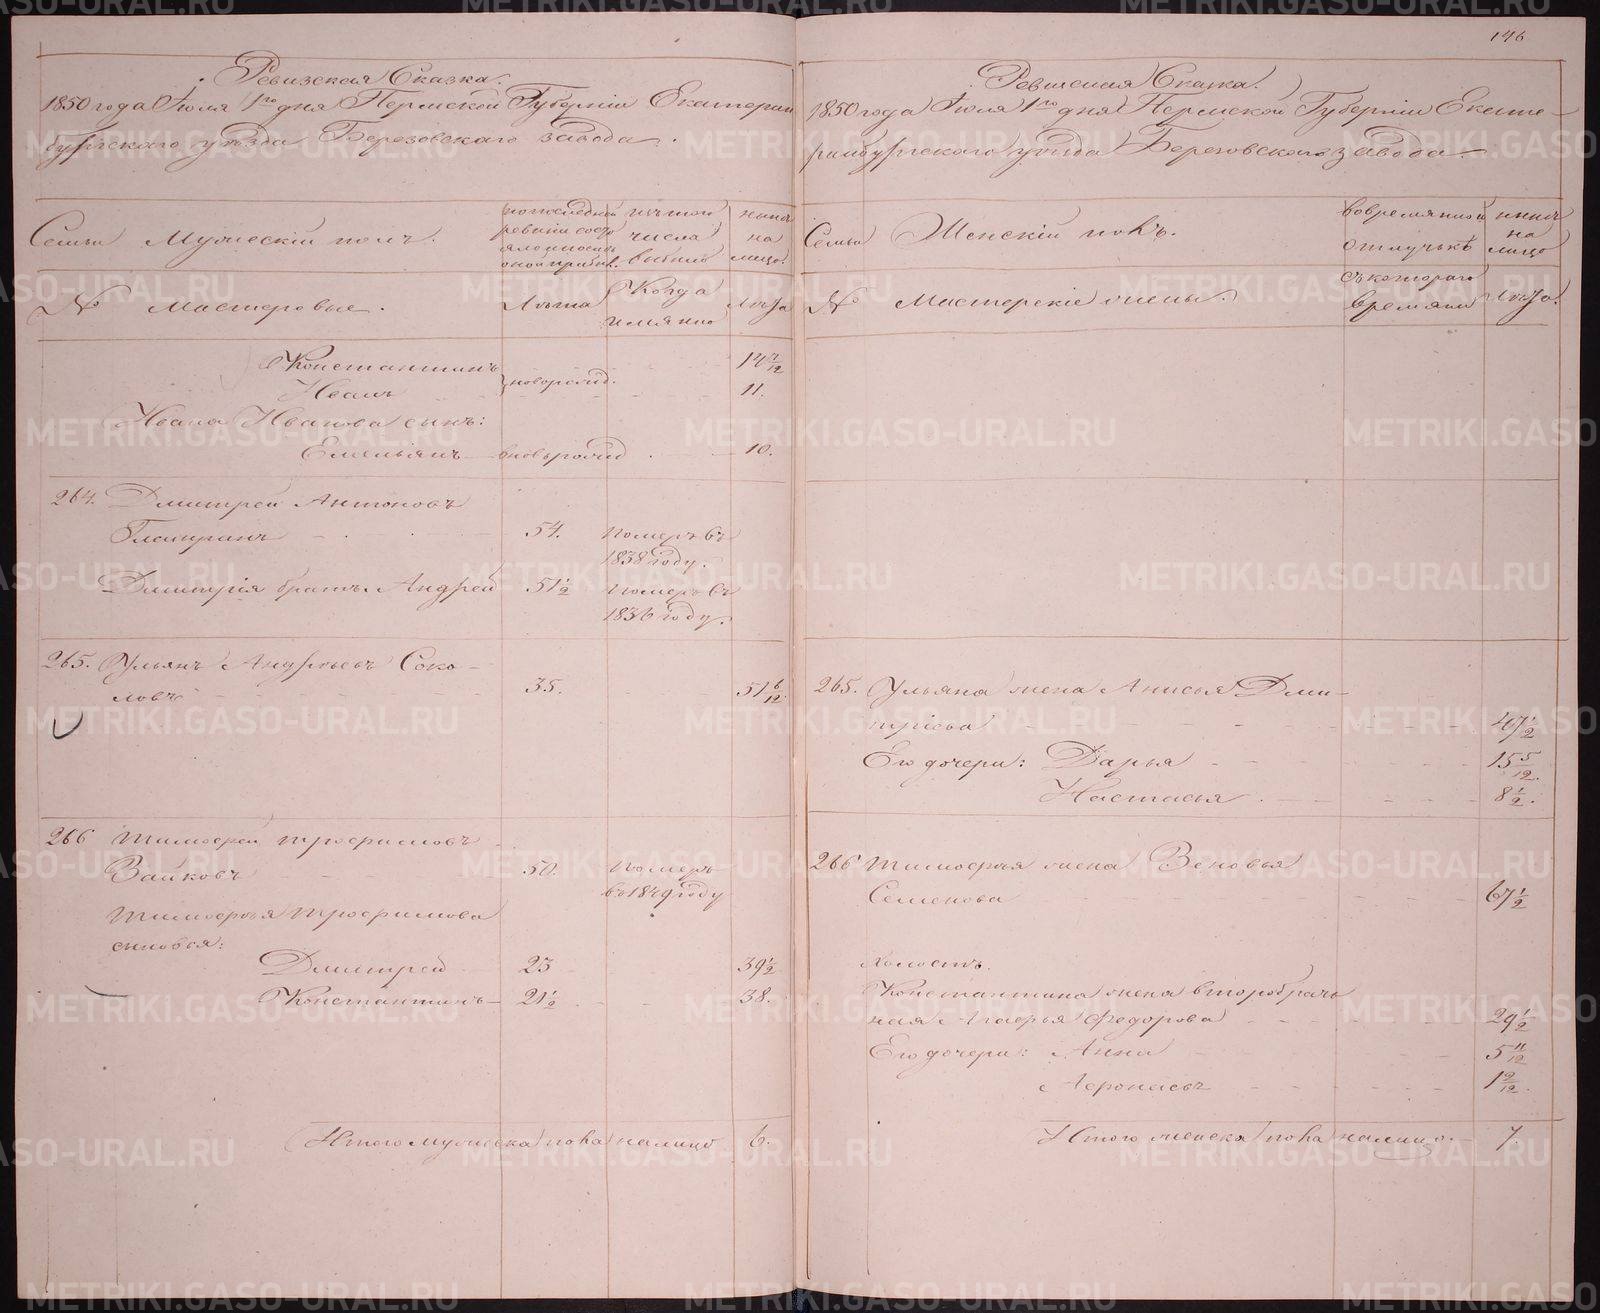 146
Ревизская Сказка.
1850 года Июля 1го дня Пермской Губернiи Екатерин
бургскаго уѣзда Березовскаго завода.
Семьи Мужескiй полъ.
По последней ревизiи состояло
изъ того числа выбыло
нынѣ на лицо.
№ Мастеровые.
Лѣта
Когда имянно
Лѣта
Константинъ 14 7/12
Иванъ новорожд. 11.
Ивана Иванова сынъ:
Емельянъ вновьрожд 10.
264. Дмитрей Антоновъ
54. Померъ въ
1838 году.
Дмитрiя братъ Андрей 51 1/2 Померъ въ
1836 году.
265. Ульянъ Андреевъ Соко-
ловъ 35. 51 6/12
266 Тимофей Трофимовъ
Зайковъ 50. Померъ
въ 1849 году
Тимофея Трофимова
сыновья:
Дмитрей 23 39 1/2
Константинъ 21 1/2 38.
Итого мужеска пола налицо 6.
Ревизская Сказка.
1850 года Июля 1го дня Пермской Губернiи Екате-
ринбургскаго уѣзда Березовскаго завода.
Семьи Женскiй полъ.
Во временной отлучкѣ
нынѣ на лицо
№ Мастерскiе жены.
Съ котораго времяни
Лѣта.
265. Ульяна жена Анисья Дми-
трiева 47 1/2
Его дочери: Дарья 15 5/12.
Настасья 8 1/2.
266 Тимофея жена Зеновья
Семенова 67 1/2
Холостъ.
Константина жена второбрач
ная Агафья Федорова 29 1/2
Его дочери: Анна 5 11/12
Афонасья 1 9/12.
Итого женска пола налицо 7.
METRIKI.GASO-URAL.RU